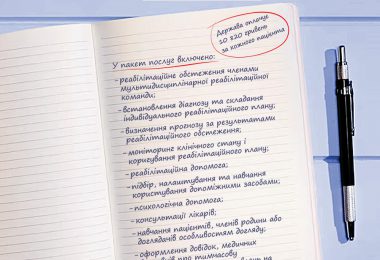 Держава оплачує
10 820 гривень
за кожного пацієнта
У пакет послуг включено:
-реабілітаційне обстеження членами
мультидисциплінарної реабілітаційної
команди;
-встановлення діагнозу та складання
індивідуального реабілітаційного плану;
-визначення прогнозу за результатами
реабілітаційного обстеження;
-моніторинг клінічного стану і
коригування реабілітаційного плану;
-реабілітаційна допомога;
-підбір, налаштування та навчання
користування допоміжними засобами;
-психологічна допомога;
-консультації лікарів;
-навчання пацієнтів, членів родини або
доглядачів особливостям догляду;
-оформлення довідок, медичних
про тимчасову
на